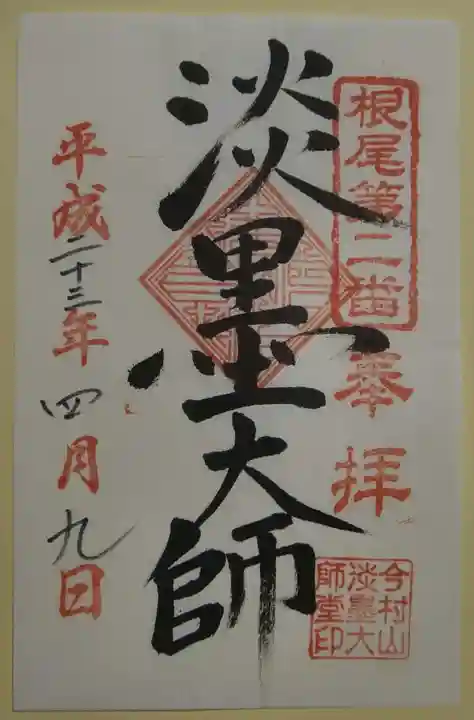 根尾第二番
奉拝
淡墨大師
平成二十三年四月九日
今村山
淡墨大
師堂印